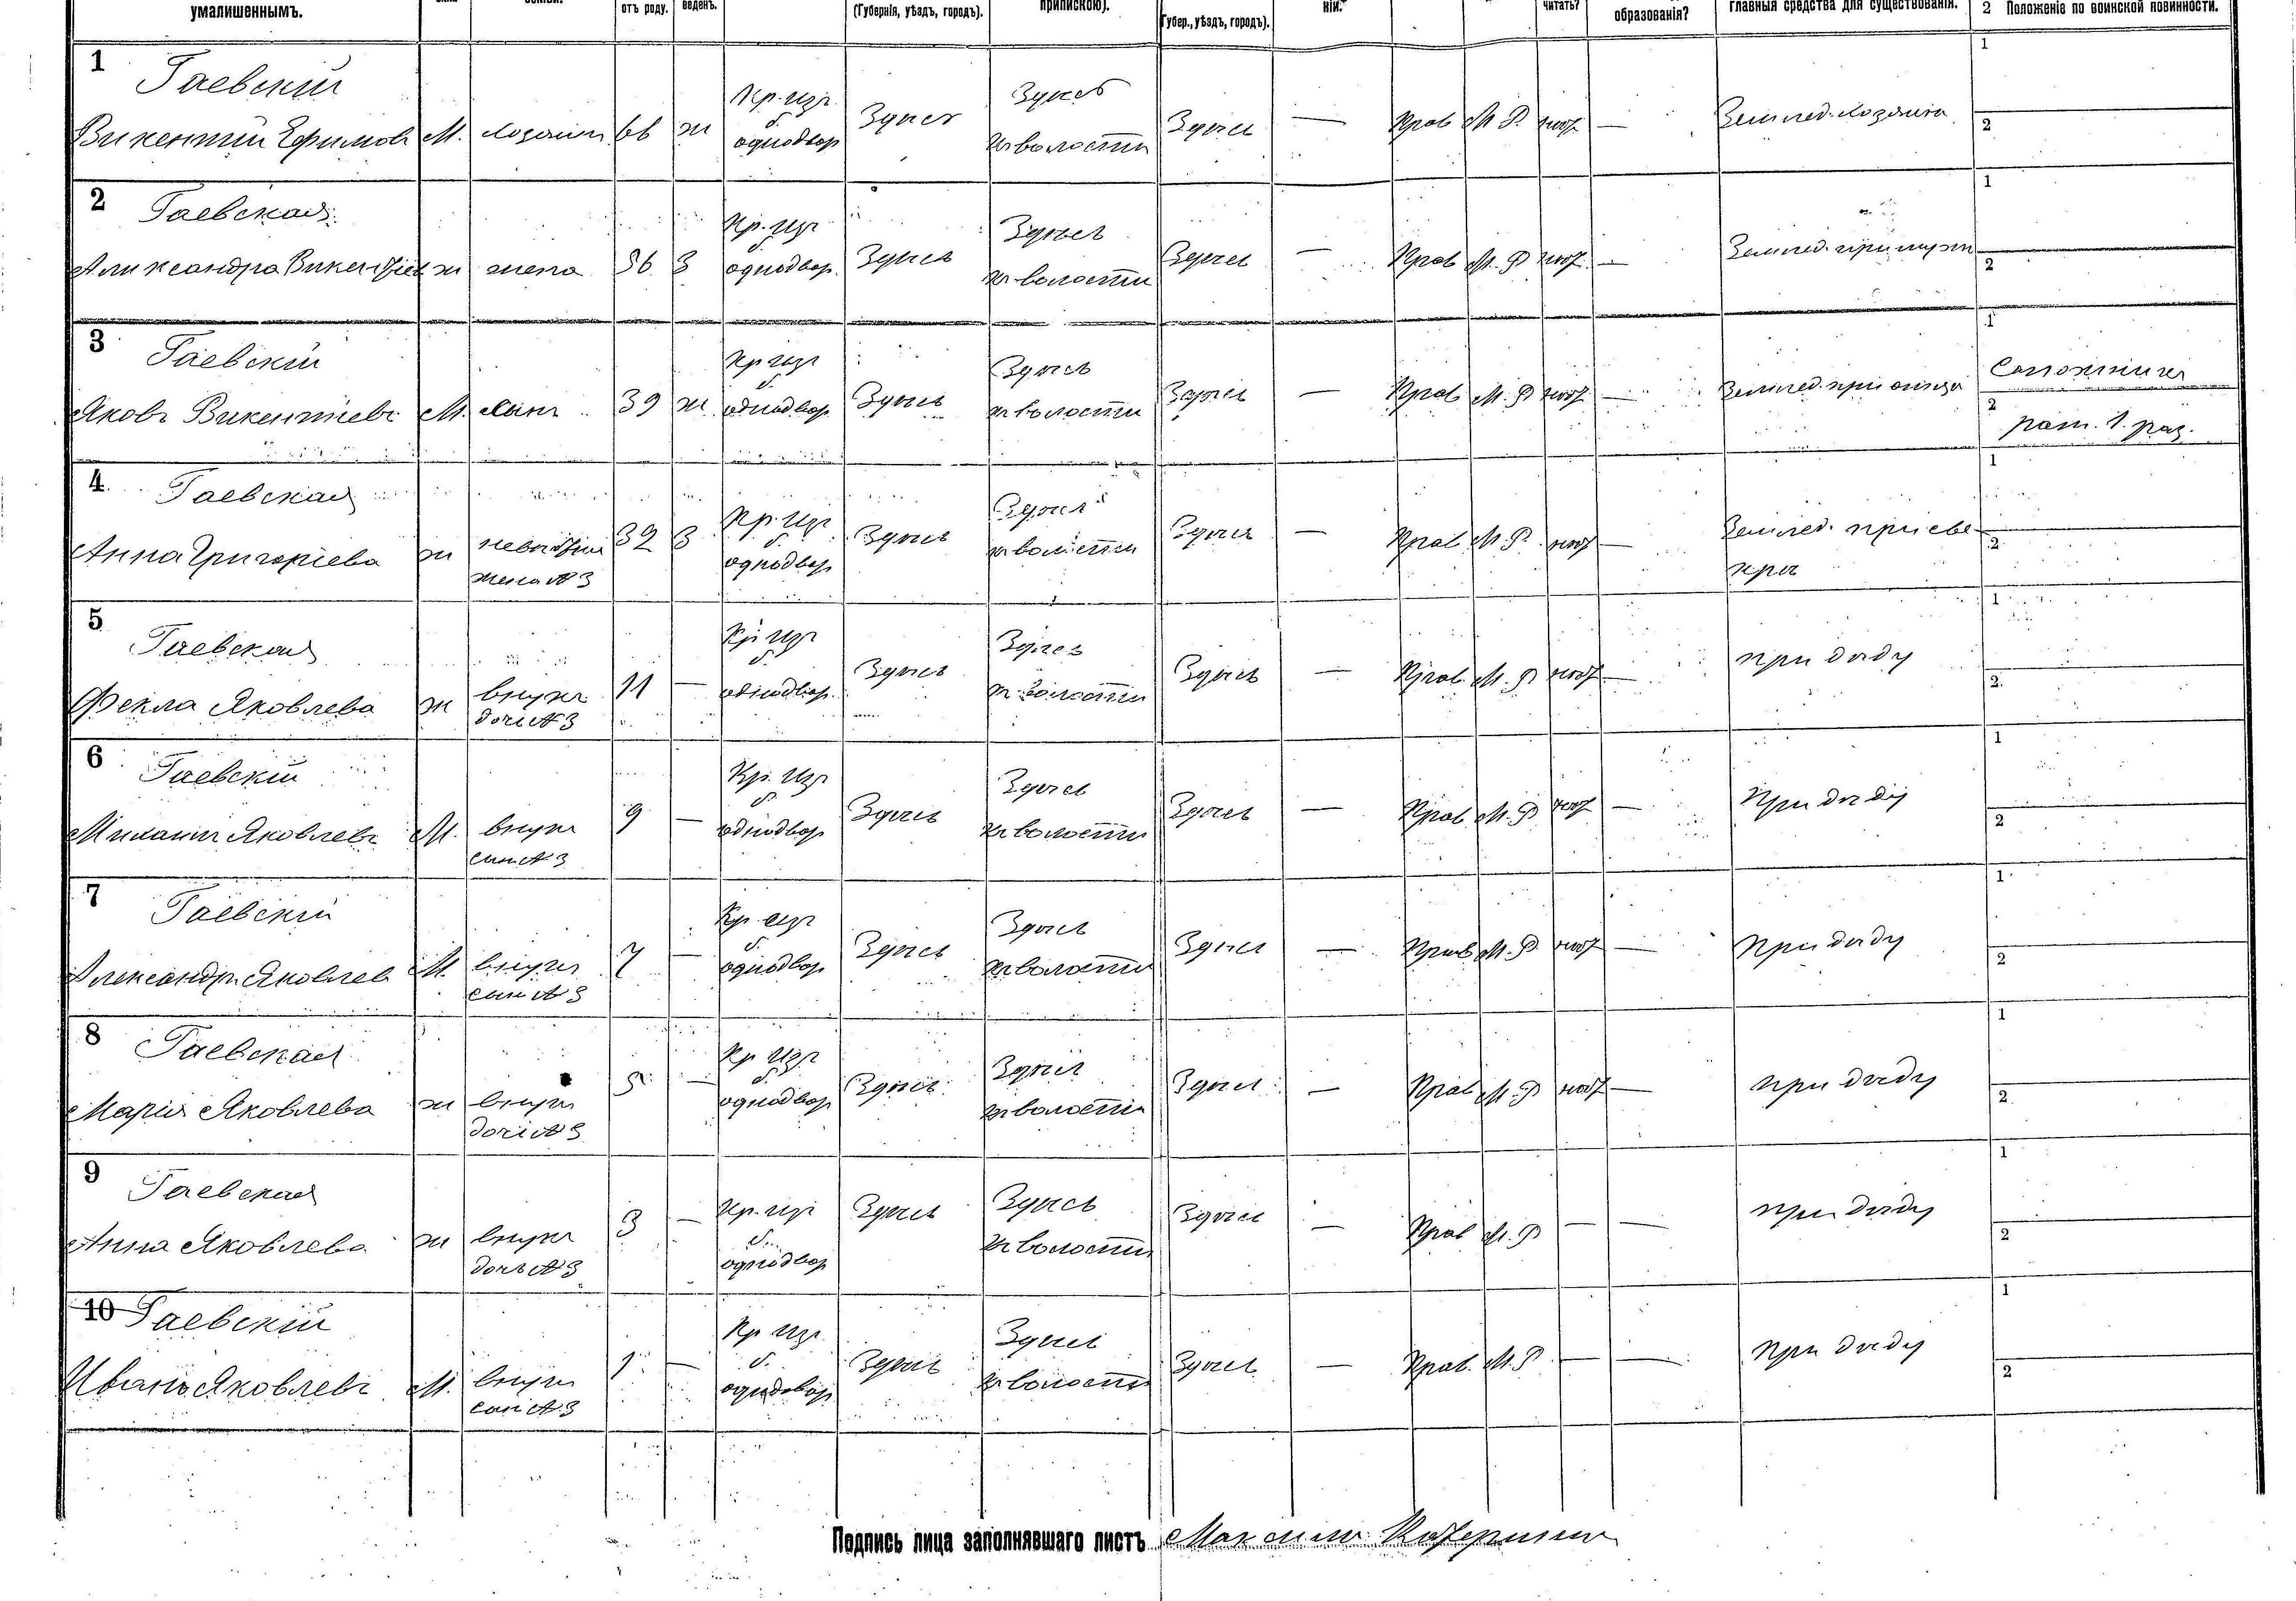 умалишеннымъ.
отъ роду.
веденъ.
(Губернія, уѣздъ, городъ).
припискою).
Губер., уѣздъ, городъ).
ніи."
читать?
образованія?
главныя средства для существованія.
2 Положеніе по воинской повинности.
1 Гаевскій
Викентій Ефимов М. хозяин 66 ж Кр. изъ б. однодвор Здѣсь Здѣсь въ волости Здѣсь — Прав М. Р. — Землед. хозяинъ
1
2
2 Гаевская
Александра Викентіев ж жена 56 З Кр. изъ б. однодвор. Здѣсь Здѣсь въ волости Здѣсь — Прав М. Р — Землед. при мужѣ
1
2
3 Гаевскій
Яковъ Викентіевъ М. сынъ 39 ж Кр изъ б. однодвор. Здѣсь Здѣсь въ волости Здѣсь — Прав М. Р — Землед. при отцѣ
1
2 рат. 1. раз.
4 Гаевская
Анна Григоріева ж невѣстка жена № 3 32 З Кр. изъ б. однодвор. Здѣсь Здѣсь въ волости Здѣсь — Прав М. Р. — Землед. при свекрѣ
1
2
5 Гаевская
Фекла Яковлева ж внучк дочь № 3 11 — Кр изъ б. однодвор. Здѣсь Здѣсь въ волости Здѣсь — Прав М. Р — при дѣду
1
2
6 Гаевскій
Яковлевъ М. внук сын № 3 9 — Кр. изъ б. однодвор Здѣсь Здѣсь въ волости Здѣсь — Прав М. Р — при дѣду
1
2
7 Гаевскій
Александръ Яковлев М. внук сын № 3 7 — Кр. изъ б. однодвор Здѣсь Здѣсь въ волости Здѣсь — Прав М. Р — при дѣду
1
2
8 Гаевская
Марія Яковлева ж внучк дочь № 3 5 — Кр изъ б. однодвор Здѣсь Здѣсь въ волости Здѣсь — Прав М. Р — при дѣду
1
2
9 Гаевская
Анна Яковлева ж внучк дочь № 3 3 — Кр. изъ б. однодвор Здѣсь Здѣсь въ волости Здѣсь — Прав М. Р — — при дѣду
1
2
10 Гаевскій
Иванъ Яковлевъ М. внук сын № 3 1 — Кр изъ б. однодвор Здѣсь Здѣсь въ волости Здѣсь — Прав. М. Р — — при дѣду
1
2
Подпись лица заполнявшаго листъ